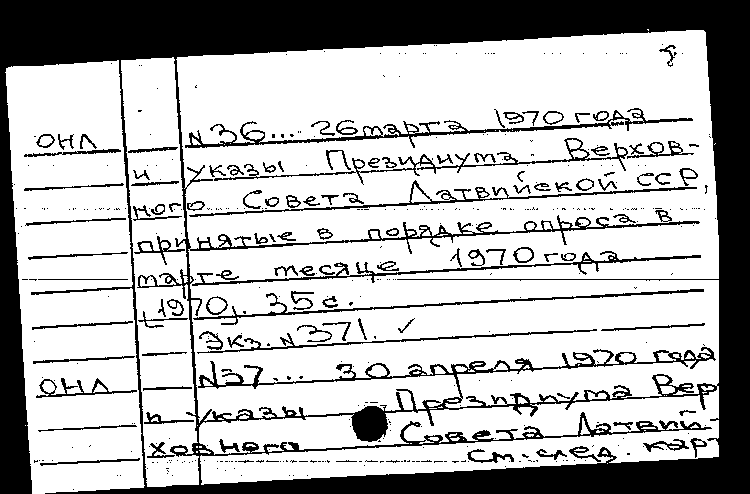 ОНЛ N 36... 26 марта 1970 года
и указы Президиума Верхов-
ного Совета Латвийской ССР,
принятые в порядке опроса в
марте месяце 1970 года
[1970]. 35 с.
Экз. N 371. ✓
ОНЛ N37... 30 апреля 1970 года
и указы Президиума Вер-
ховного Совета Латвий-
См. след. карт